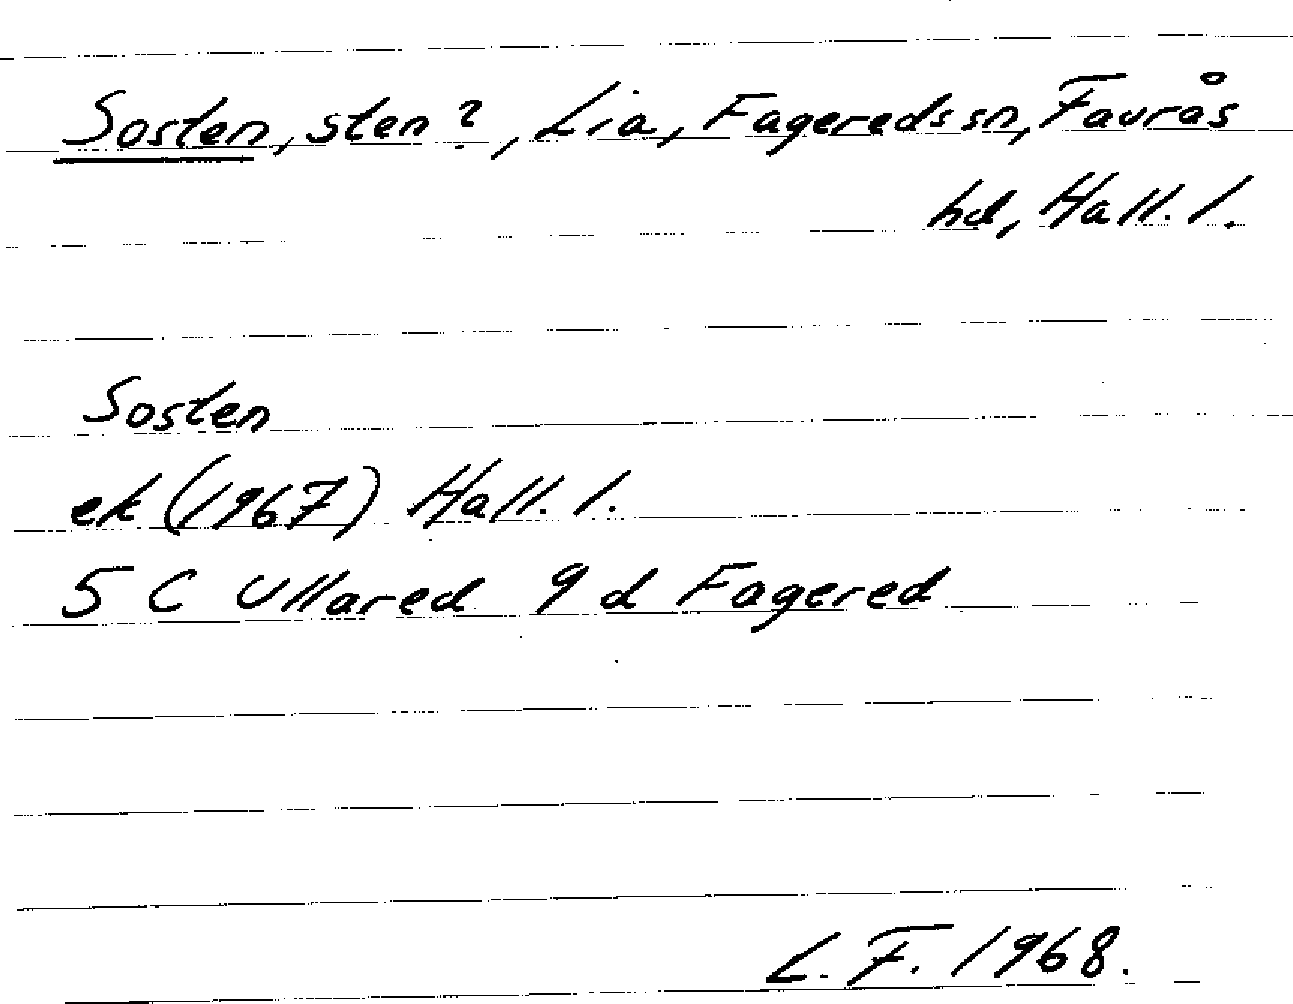 Sosten, sten?, Lia, Fagereds sn, Faurås
hd, Hall. l.
Sosten
ek (1967) Hall. l.
5 C Ullared 9 d Fagered
L. F. 1968.